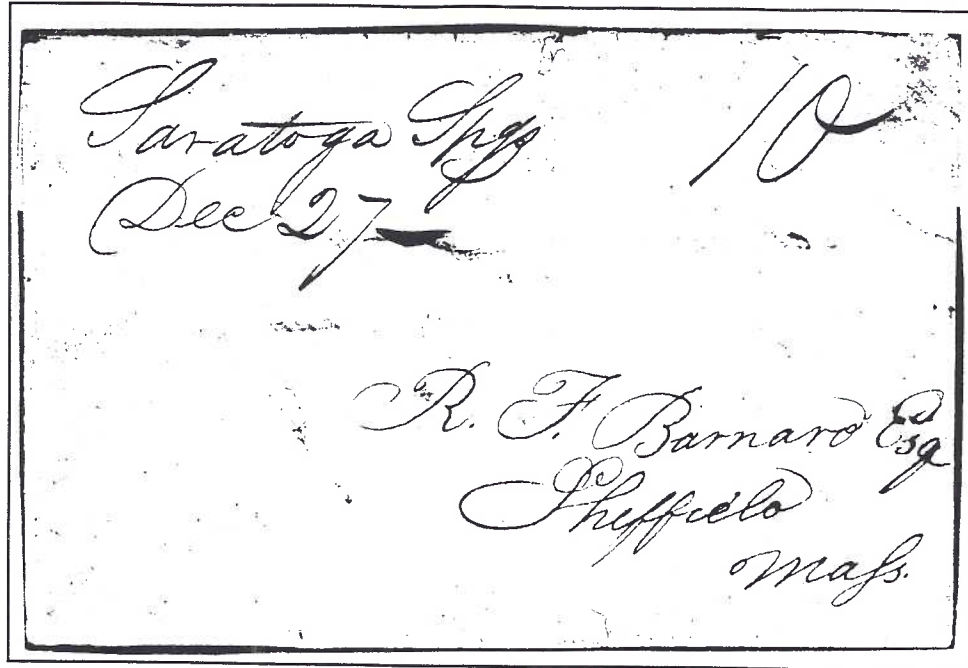 Saratoga Spgs 10
Dec 27
R. F. Barnard Esq
Sheffield
Mass.